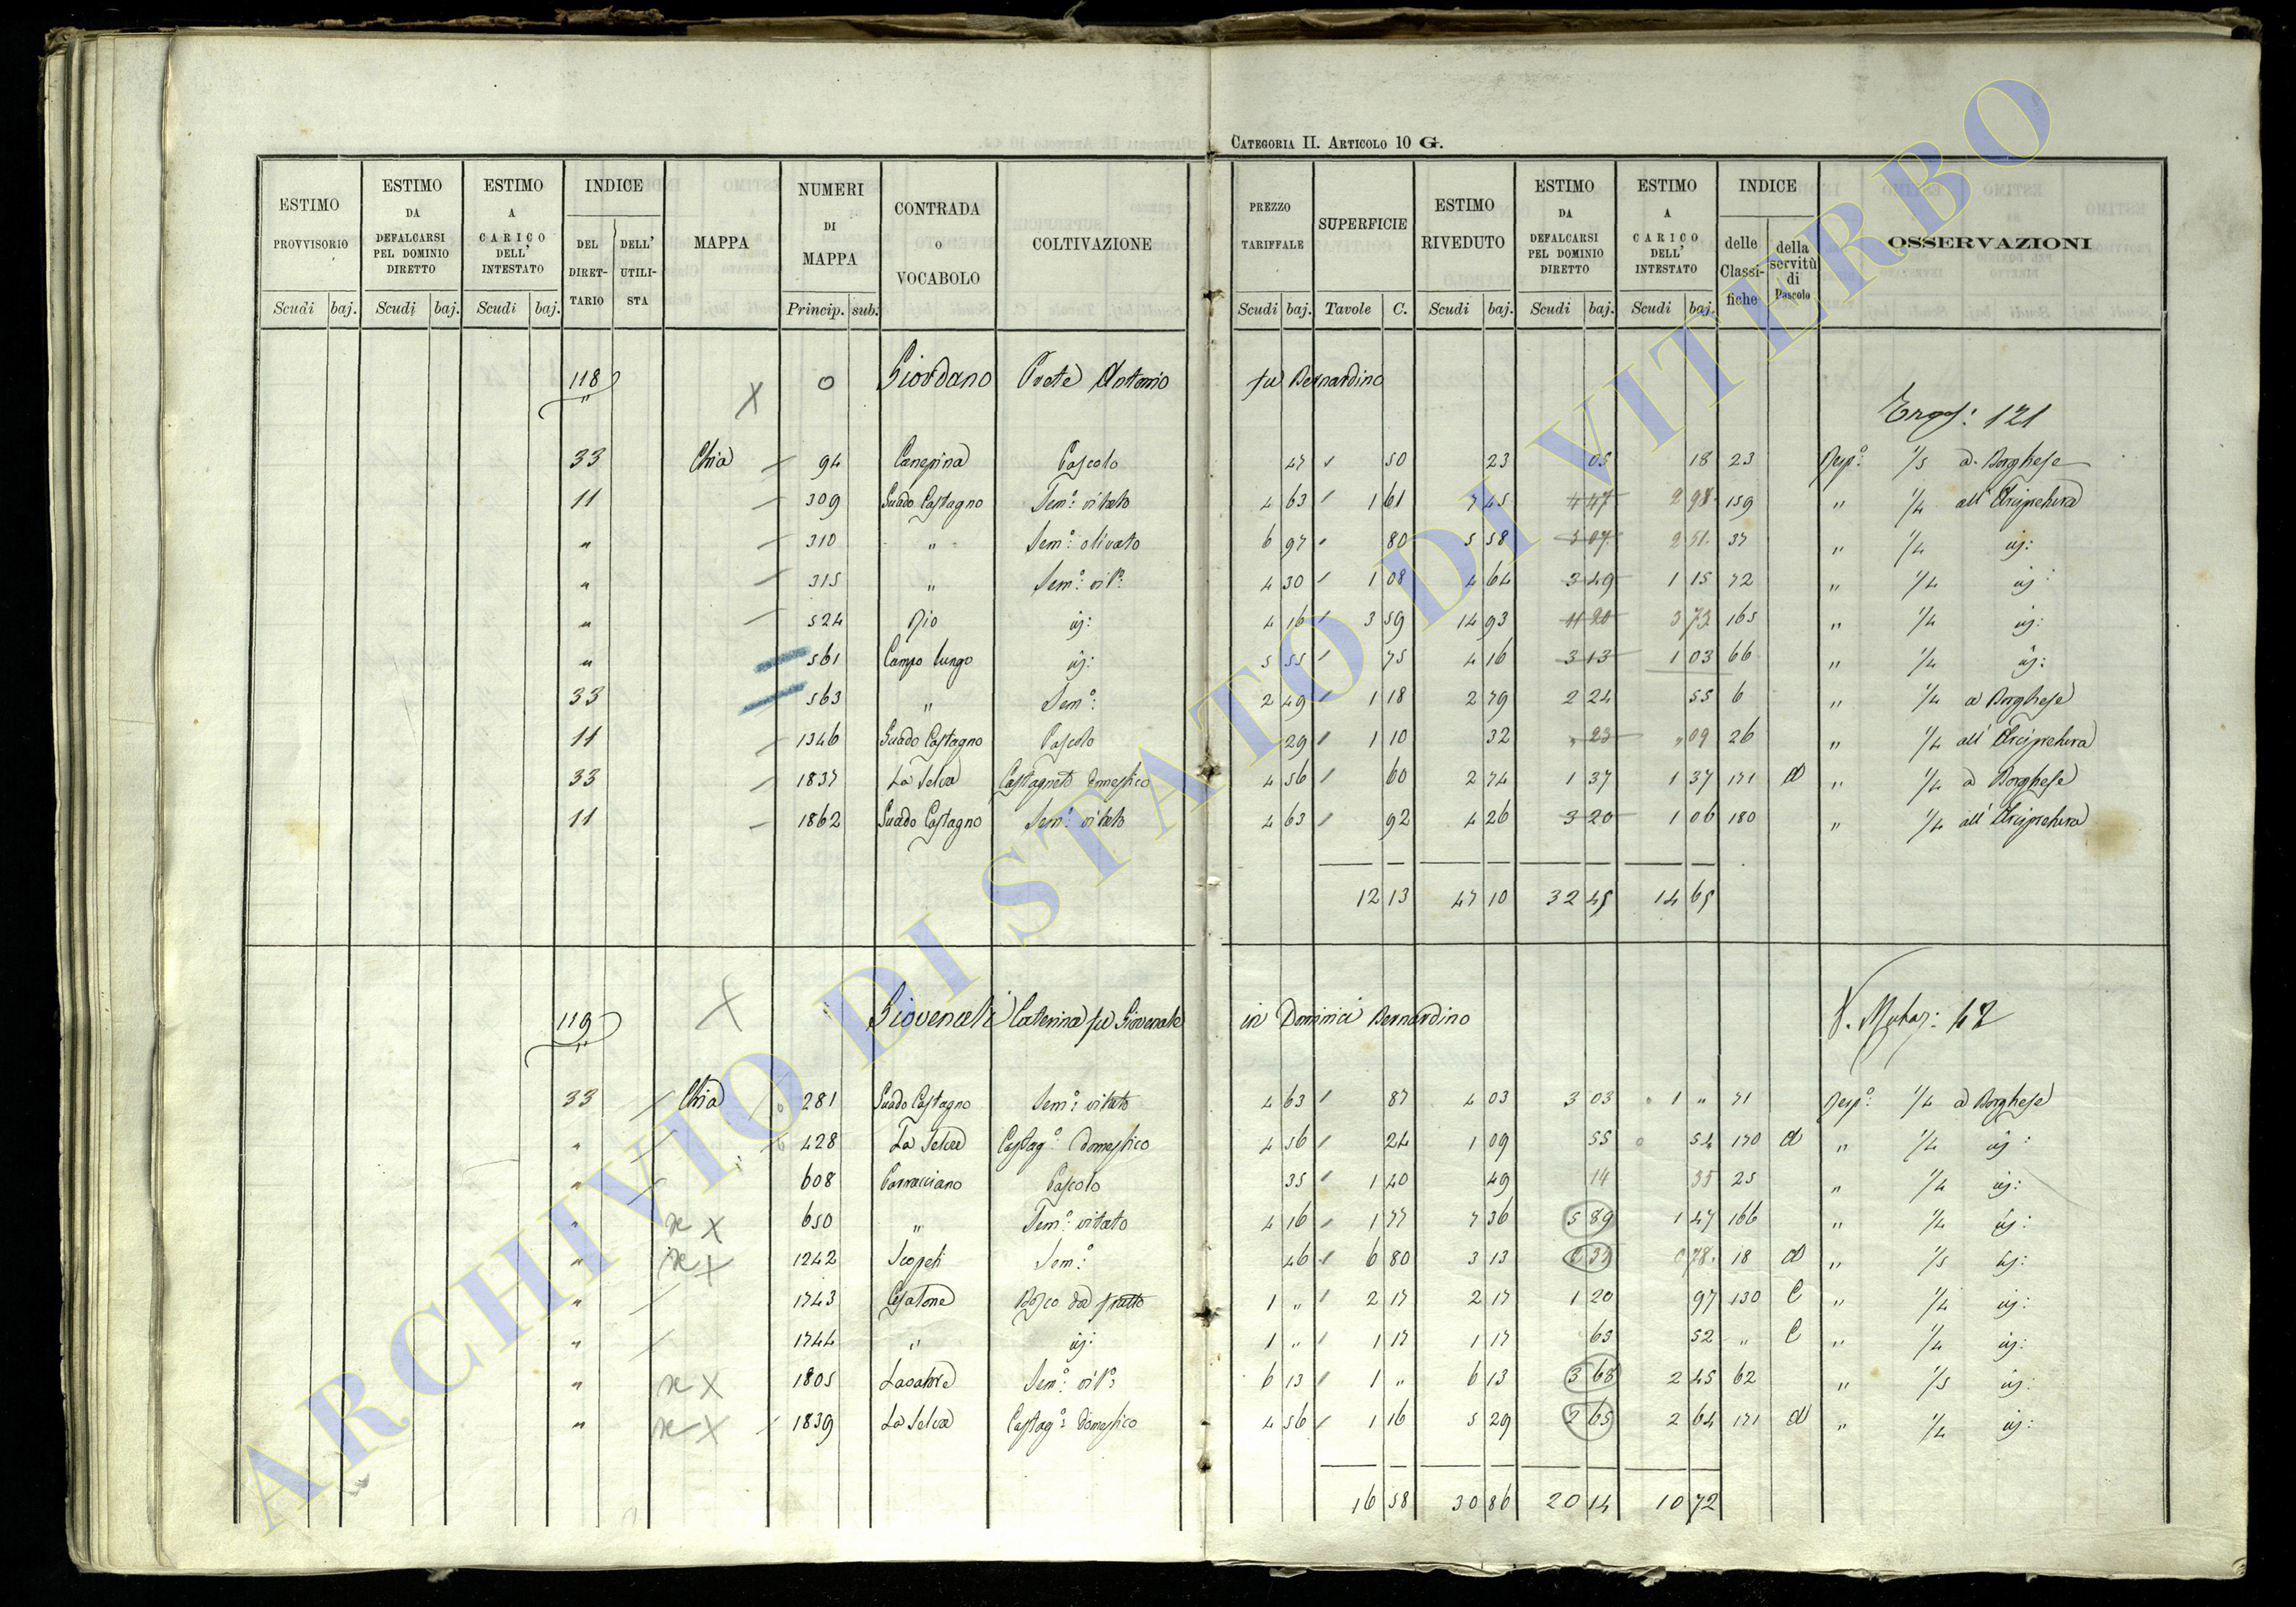 CATEGORIA II. ARTICOLO 10 G.
ESTIMO PROVVISORIO Scudi baj. ESTIMO DA DEFALCARSI PEL DOMINIO DIRETTO Scudi baj. ESTIMO A CARICO DELL' INTESTATO Scudi baj. INDICE DEL DIRETTARIO DELL' UTILISTA MAPPA NUMERI DI MAPPA Princip. sub. CONTRADA O VOCABOLO COLTIVAZIONE PREZZO TARIFFALE Scudi baj. SUPERFICIE Tavole C. ESTIMO RIVEDUTO Scudi baj. ESTIMO DA DEFALCARSI PEL DOMINIO DIRETTO Scudi baj. ESTIMO A CARICO DELL' INTESTATO Scudi baj. INDICE delle Classifiche della servitù di Pascolo OSSERVAZIONI
118 X 0 Giordano Prete Antonio fu Bernardino
121
33 Chia 94 Canepina Pascolo 47 50 23 05 18 23 Risp.º 1/5 a Borghese
11 309 Guado Castagno Sem.º vitato 4 63 1 61 7 45 4 47 2 98 159 " 1/4 all'Arcipretura
" 310 " Sem.º olivato 6 97 80 5 58 3 07 2 51 37 " 1/4 id:
" 315 " Sem.º vit.º 4 30 1 08 4 64 3 49 1 15 72 " 1/4 id:
" 524 Rio id: 4 16 3 59 14 93 11 20 3 73 165 " 1/4 id:
" 561 Campo lungo id: 5 55 75 4 16 3 13 1 03 66 " 1/4 id:
33 563 " Sem.º 2 49 1 18 2 79 2 24 55 6 " 1/4 a Borghese
11 1346 Guado Castagno Pascolo 29 1 10 32 " 23 " 09 26 " 1/4 all'Arcipretura
33 1837 La Selva Castagneto domestico 4 56 60 2 74 1 37 1 37 171 d " 1/4 a Borghese
11 1862 Guado Castagno Sem.º vitato 4 63 92 4 26 3 20 1 06 180 " 1/4 all'Arcipretura
12 13 47 10 32 45 14 65
119 X Giovenali Caterina fu Giovenale in Dominici Bernardino V. Mutaz:
33 Chia 281 Guado Castagno Sem.º vitato 4 63 87 4 03 3 03 1 " 71 Risp.º 1/4 a Borghese
" 428 La Selva Castag.º domestico 4 56 24 1 09 55 54 170 d " 1/4 id:
" 608 Parracciano Pascolo 35 1 40 49 14 35 25 " 1/4 id:
" X 650 " Sem.º vitato 4 16 1 77 7 36 5 89 1 47 166 " 1/4 id:
" X 1242 Scopeti Sem.º 46 6 80 3 13 2 35 78 18 d " 1/5 id:
" 1743 Cesatone Bosco da frutto 1 " 2 17 2 17 1 20 97 130 C " 1/4 id:
" 1744 " id: 1 " 1 17 1 17 65 52 " C " 1/4 id:
" X 1805 Sem.º vit.º 6 13 1 " 6 13 3 68 2 45 62 " 1/5 id:
" X 1839 La Selva Castag.º domestico 4 56 1 16 5 29 2 65 2 64 171 d " 1/4 id:
16 58 30 86 20 14 10 72
ARCHIVIO DI STATO DI VITERBO